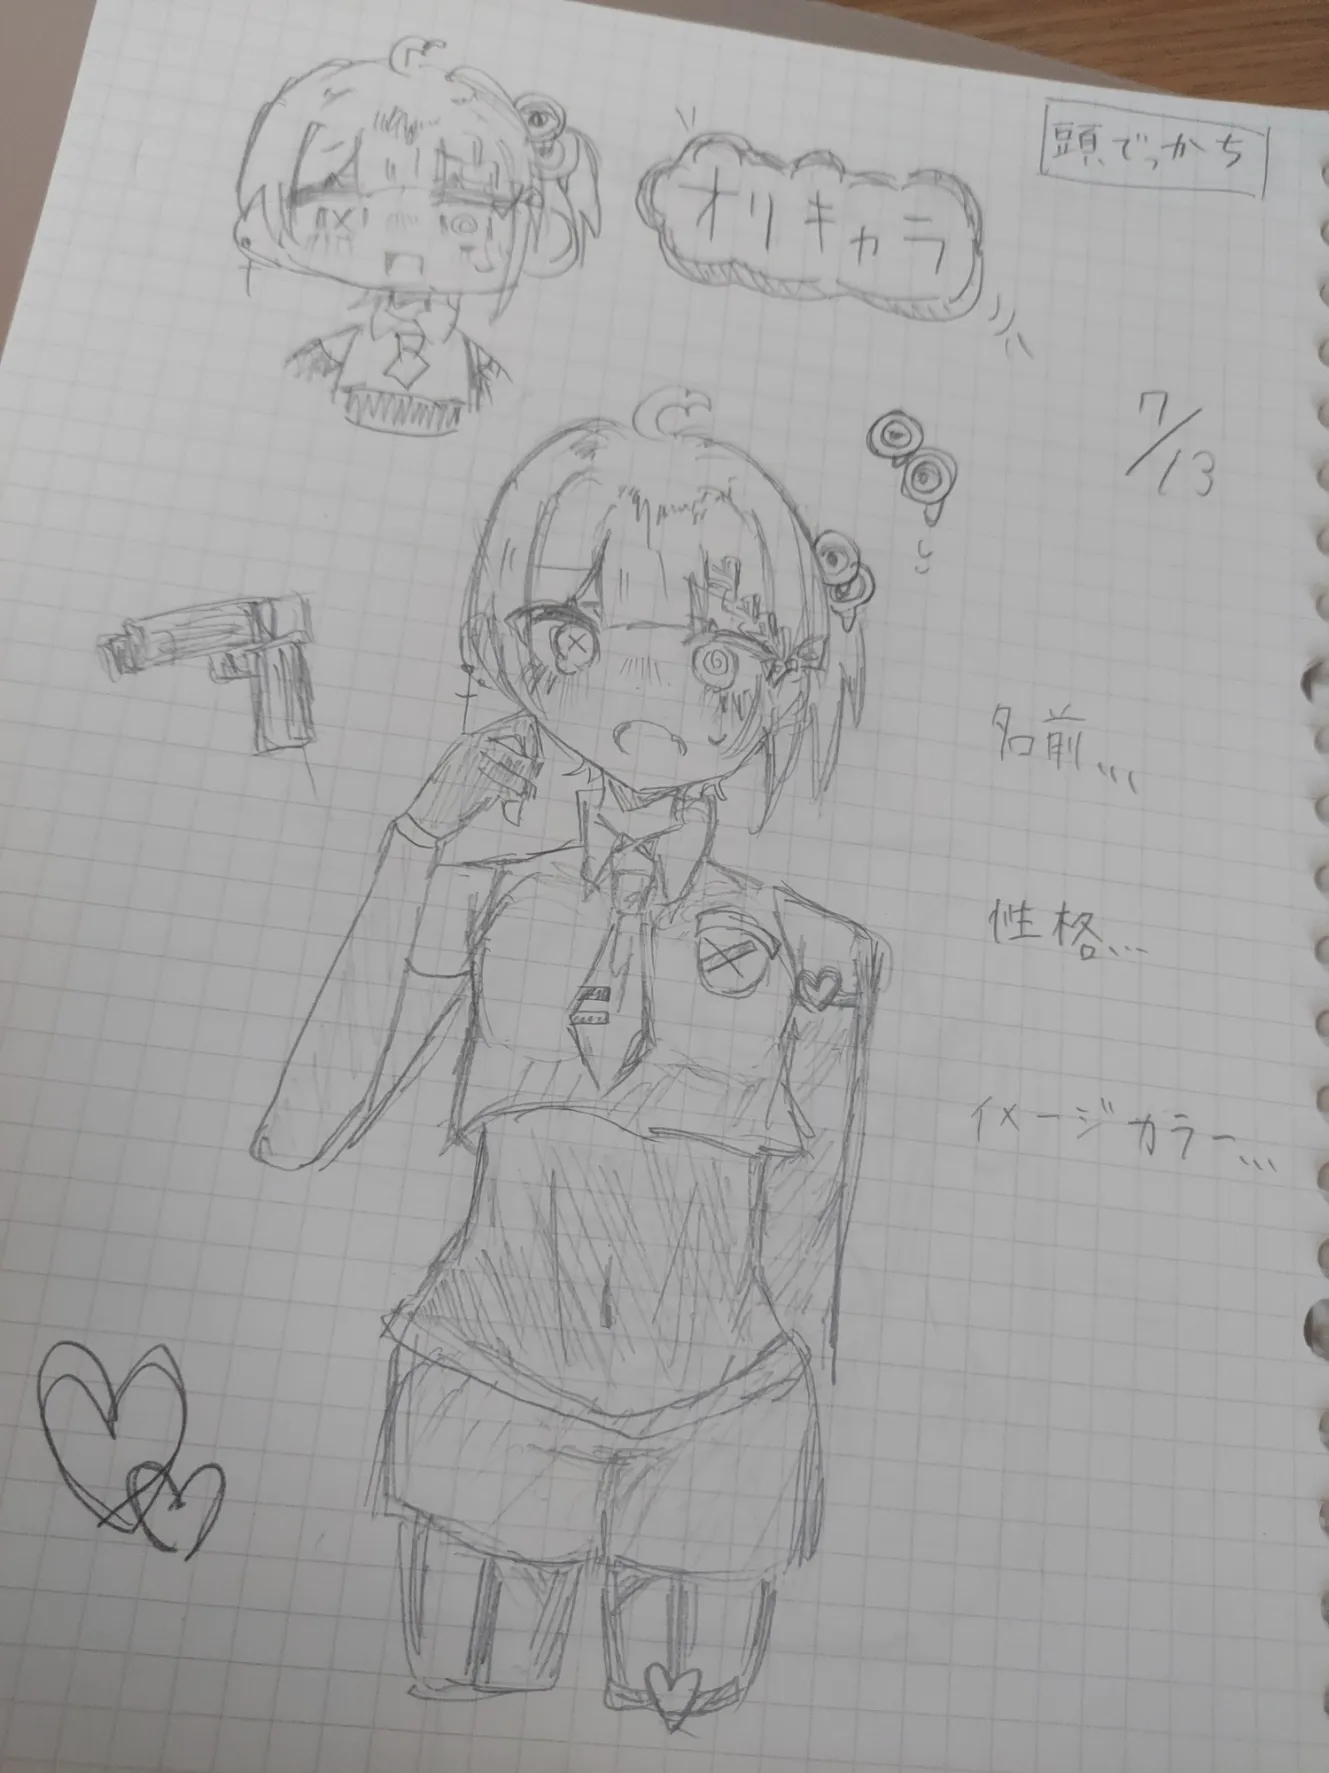 頭でっかち
オリキャラ
7/13
名前...
性格...
イメージカラー...